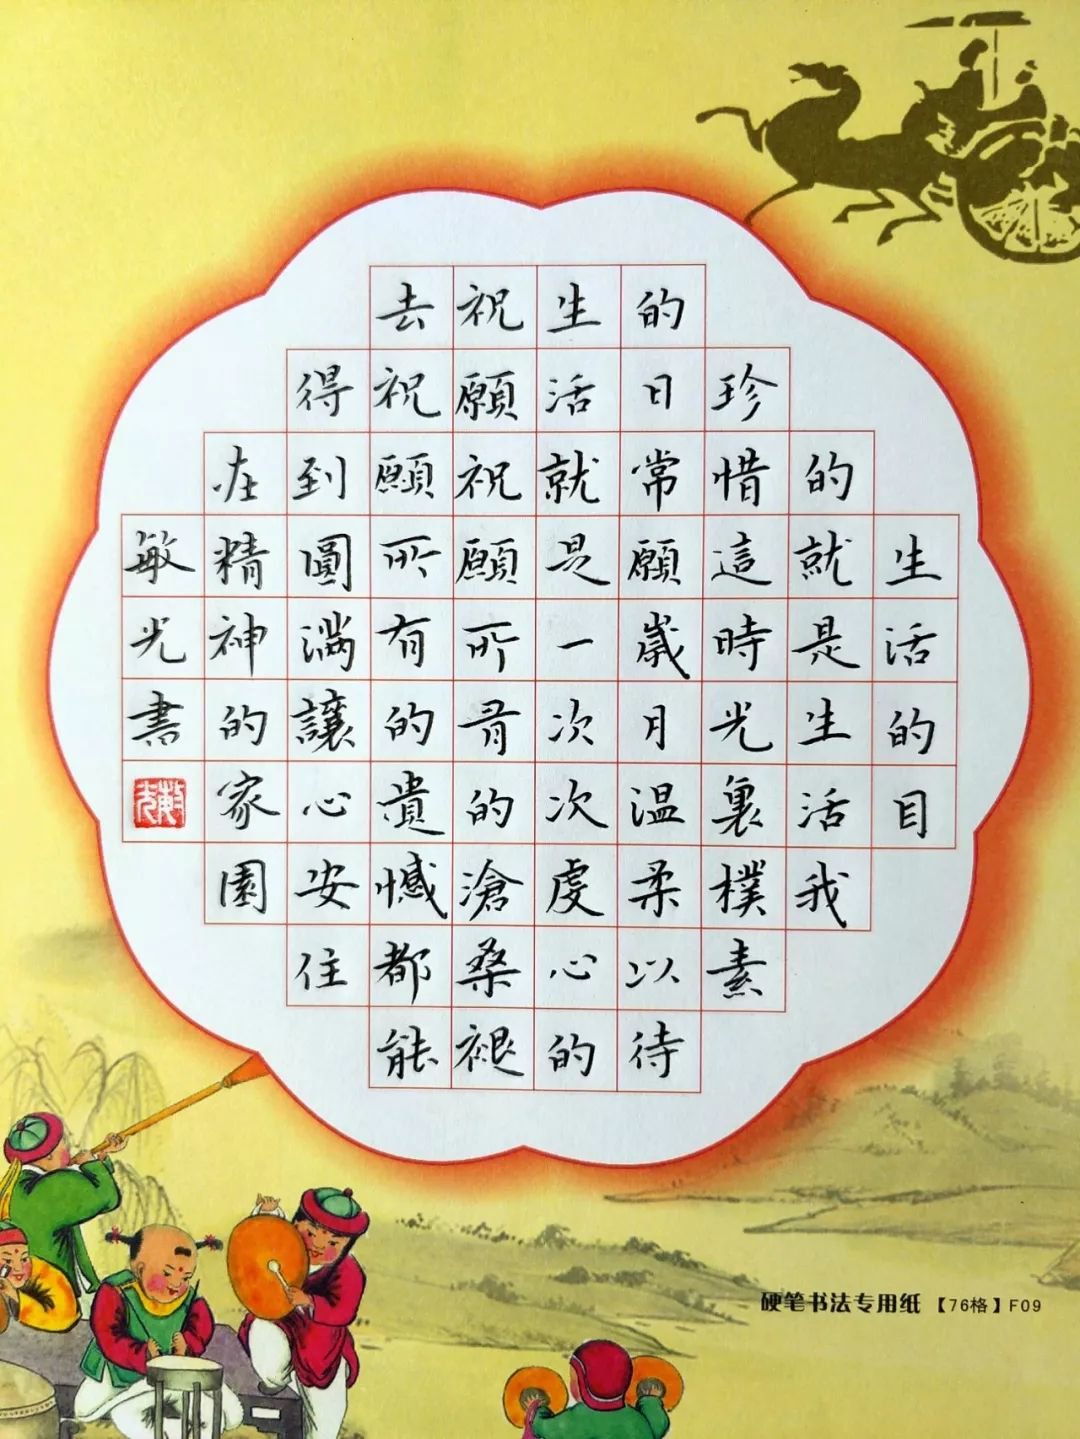 生活的目
的就是生活我
珍惜這時光裏樸素
的日常願歲月温柔以待
生活就是一次次虔心的
祝願祝願所有的滄桑褪
去祝願所有的遺憾都能
得到圓滿讓心安住
在精神的家園
敏光書
硬笔书法专用纸【76格】F09